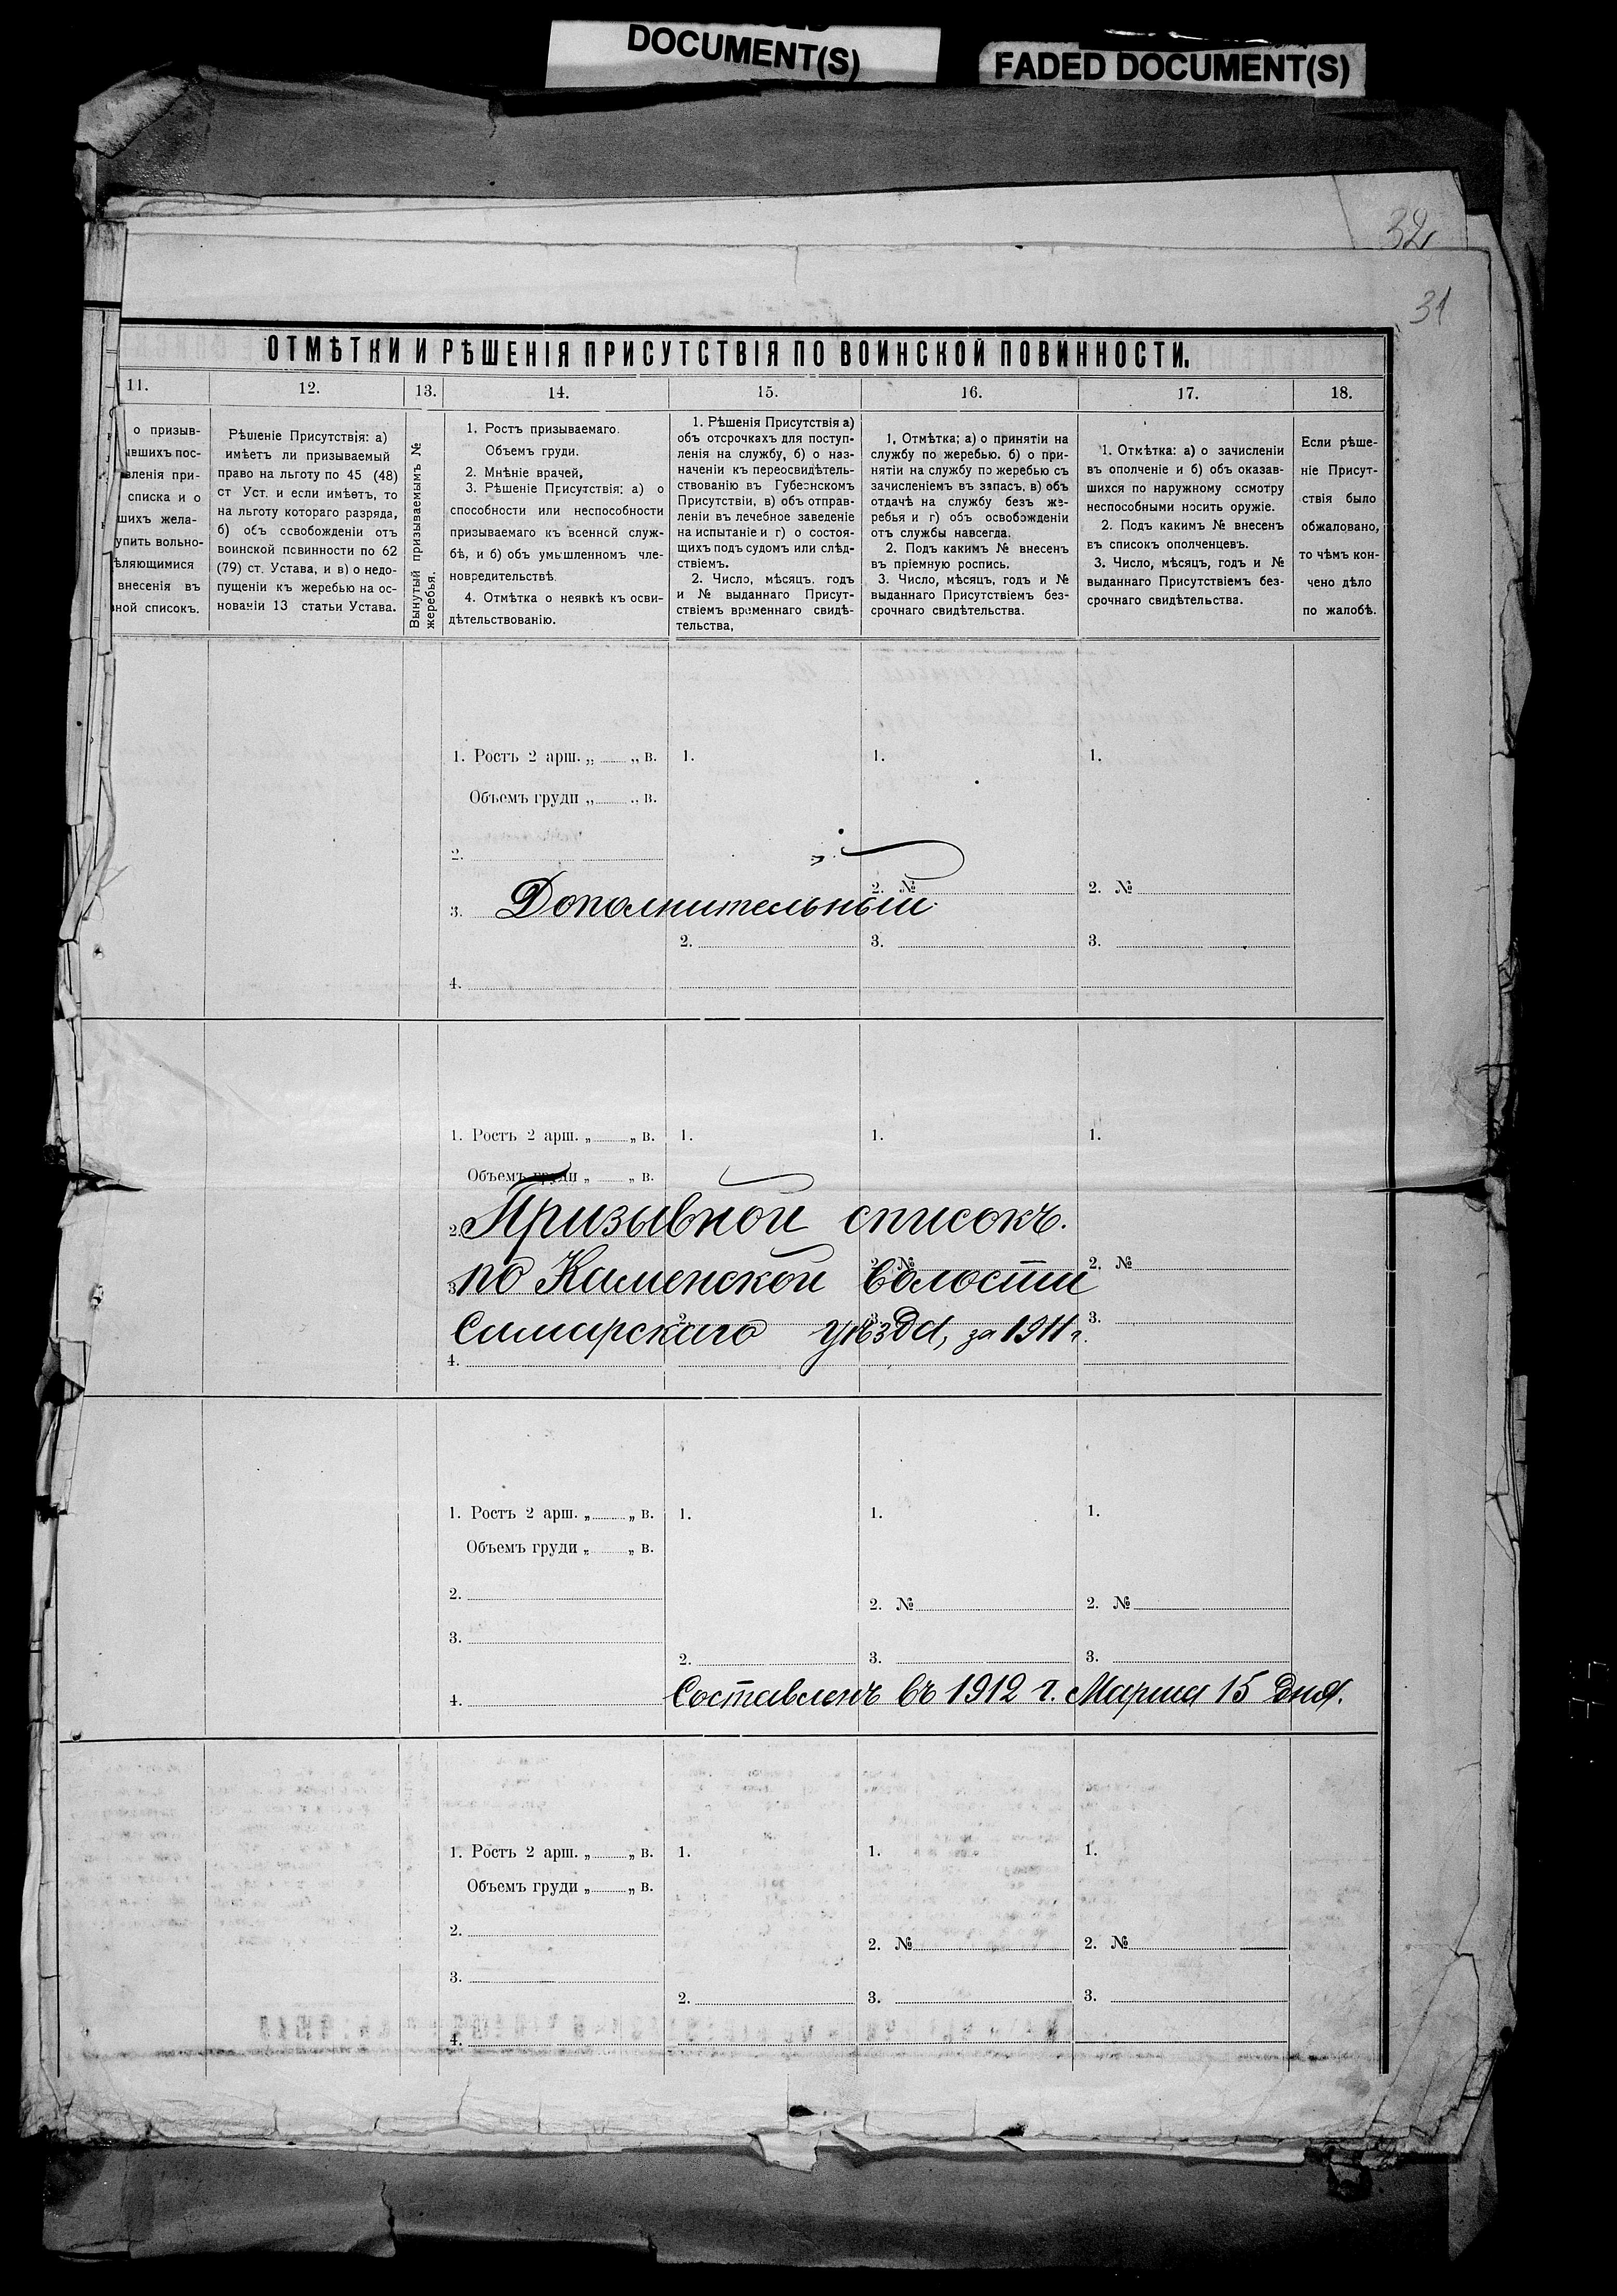 DOCUMENT(S)
FADED DOCUMENT(S)
32
31
ОТМѢТКИ И РѢШЕНІЯ ПРИСУТСТВІЯ ПО ВОИНСКОЙ ПОВИННОСТИ.
11. 12. 13. 14. 15. 16. 17. 18.
о призыв-
вшихъ пос-
вленія при-
списка и о
шихъ жела-
упить вольно-
ѣляющимися
внесенія въ
ной списокъ.
Рѣшеніе Присутствія: а)
имѣетъ ли призываемый
право на льготу по 45 (48)
ст Уст. и если имѣетъ, то
на льготу котораго разряда,
б) объ освобожденіи отъ
воинской повинности по 62
(79) ст. Устава, и в) о недо-
пущеніи къ жеребью на ос-
нованіи 13 статьи Устава.
Вынутый призываемымъ №
жеребья.
1. Ростъ призываемаго.
Объемъ груди.
2. Мнѣніе врачей,
3. Рѣшеніе Присутствія: а) о
способности или неспособности
призываемаго къ военной служ-
бѣ, и б) объ умышленномъ чле-
новредительствѣ.
4. Отмѣтка о неявкѣ къ осви-
дѣтельствованію.
1. Рѣшенія Присутствія а)
объ отсрочкахъ для поступ-
ленія на службу, б) о наз-
наченіи къ переосвидѣтель-
ствованію въ Губернскомъ
Присутствіи, в) объ отправ-
леніи въ лечебное заведеніе
на испытаніе и г) о состоя-
щихъ подъ судомъ или слѣд-
ствіемъ.
2. Число, мѣсяцъ. годъ
и № выданнаго Присут-
ствіемъ временнаго свидѣ-
тельства,
1, Отмѣтка; а) о принятіи на
службу по жеребью. б) о при-
нятіи на службу по жеребью съ
зачисленіемъ въ запасъ, в) объ
отдачѣ на службу безъ же-
ребья и г) объ освобожденіи
отъ службы навсегда.
2. Подъ какимъ № внесенъ
въ пріемную роспись.
3. Число, мѣсяцъ, годъ и №
выданнаго Присутствіемъ без-
срочнаго свидѣтельства.
1. Отмѣтка: а) о зачисленіи
въ ополченіе и б) объ оказав-
шихся по наружному осмотру
неспособными носить оружіе.
2. Подъ какимъ № внесенъ
въ списокъ ополченцевъ.
3. Число, мѣсяцъ, годъ и №
выданнаго Присутствіемъ без-
срочнаго свидѣтельства.
Если рѣше-
ніе Присут-
ствія было
обжаловано,
то чѣмъ кон-
чено дѣло
по жалобѣ.
1. Ростъ 2 арш. „ „ в. 1. 1. 1.
Объемъ груди „ „ в.
2.
2. № 2. №
3. Дополнительный
2. 3. 3.
4.
1. Ростъ 2 арш. „ „ в. 1. 1. 1.
Объемъ груди „ „ в.
2. Призывной списокъ.
2. № 2. №
3. по Каменской волости
2. 3. 3.
Самарскаго уѣзда, за 1911 г.
4.
1. Ростъ 2 арш. „ „ в. 1. 1. 1.
Объемъ груди „ „ в.
2.
2. № 2. №
3.
2. 3. 3.
4. Составленъ въ 1912 г. Марта 15 дня.
1. Ростъ 2 арш. „ „ в. 1. 1. 1.
Объемъ груди „ „ в.
2.
2. № 2. №
3.
2. 3. 3.
4.